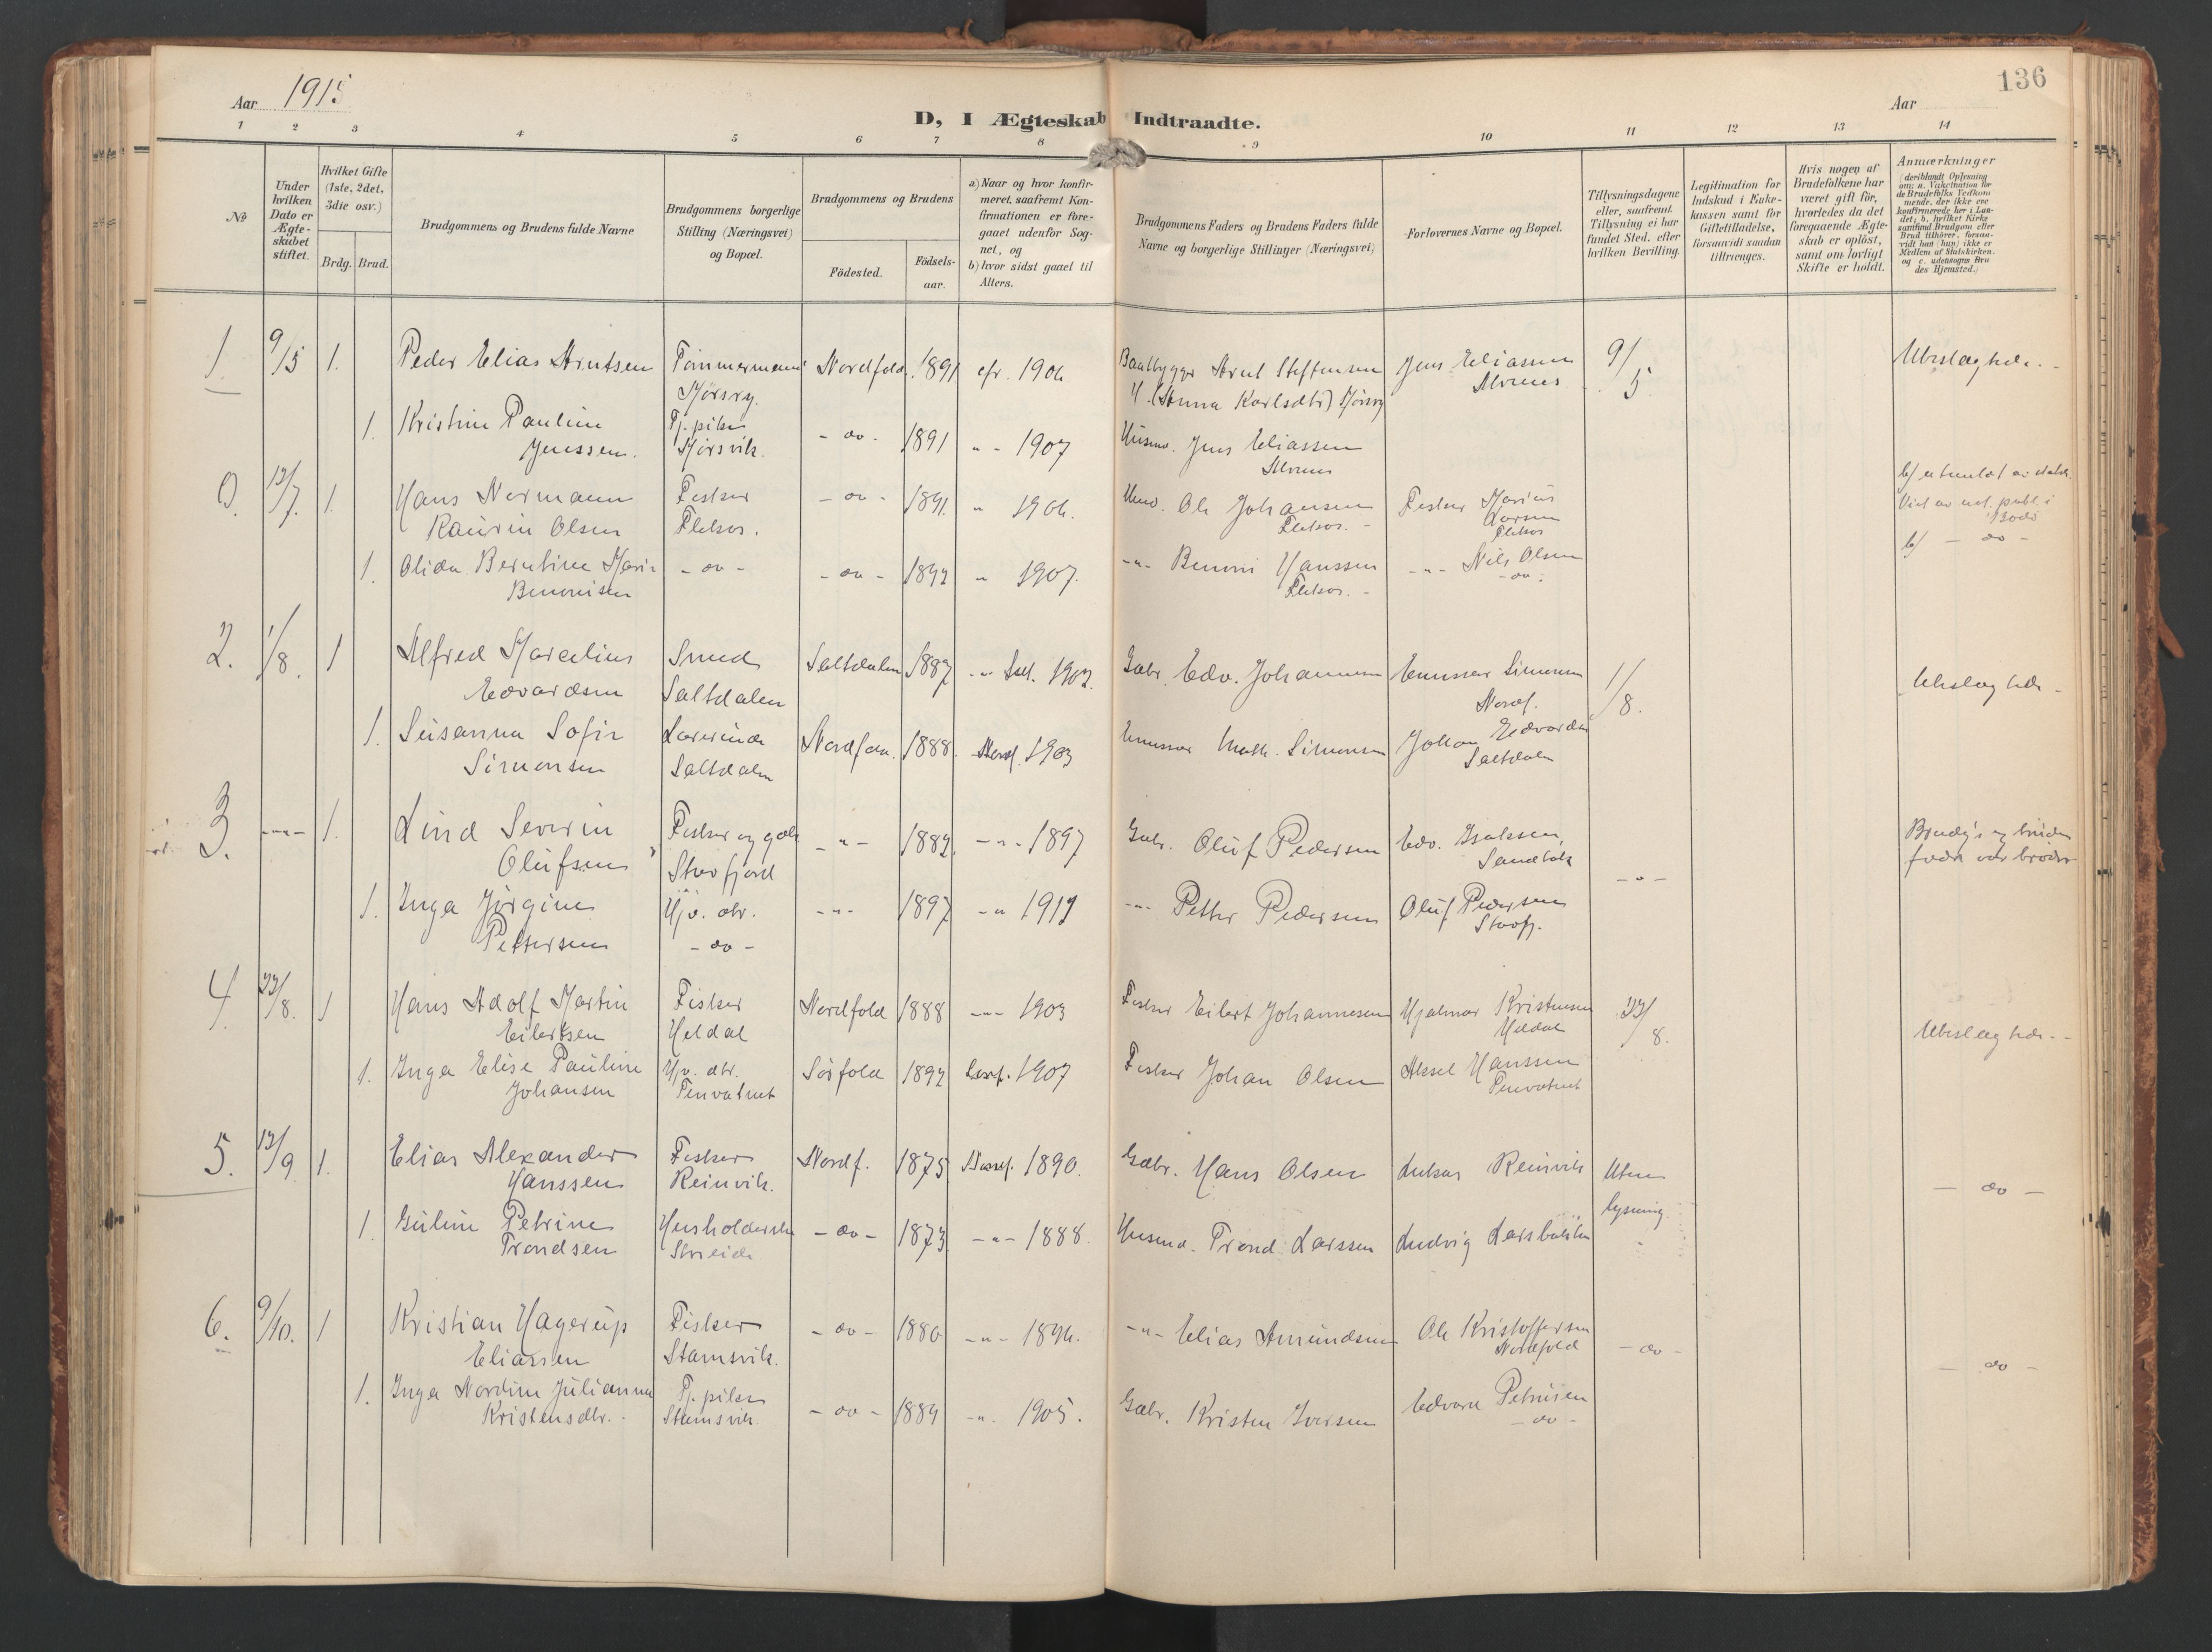 136
Aar 1915
Aar
D, I Ægteskab Indtraadte.
1 2 3 4 5 6 7 8 9 10 11 12 13 14
No
Under
hvilken
Dato er
Ægte-
skabet
stiftet.
Hvilket Gifte
(1ste, 2det,
3die osv.)
Brdg. Brud.
Brudgommens og Brudens fulde Navne
Brudgommens borgerlige
Stilling (Næringsvei)
og Bopæl.
Brudgommens og Brudens
Födested.
Födsels-
aar.
a) Naar og hvor konfir-
meret, saafremt Kon-
firmationen er fore-
gaaet udenfor Sog-
net, og
b) hvor sidst gaaet til
Alters.
Brudgommens Faders og Brudens Faders fulde
Navne og borgerlige Stillinger (Næringsvei)
Forlovernes Navne og Bopæl.
Tillysningsdagene
eller, saafremt
Tillysning ei har
fundet Sted, efter
hvilken Bevilling.
Legitimation for
Indskud i Enke-
kassen samt for
Giftetilladelse,
forsaavidt saadan
tiltrænges.
Hvis nogen af
Brudefolkene har
været gift för,
hvorledes da det
foregaaende Ægte-
skab er oplöst,
samt om lovligt
Skifte er holdt.
Anmærkninger
(deriblandt Oplysning
om: a. Vakcination for
de Brudefolks Vedkom
mende, der ikke ere
konfirmerede her i Lan-
det; b. hvilket Kirke
samfund Brudgom eller
Brud tilhörer, forsaa-
vidt han (hun) ikke er
Medlem af Statskirken.
og c. udensogns Bru
des Hjemsted.)
1 9/5 1. Peder Elias Arntsen Tömmermann Nordfold. 1891 efr. 1906 Baatbygger Arnt Steffensen Jens Eliassen 9/5
Mörsry. (Anna Karlsdtr)
1. Kristine Pauline Tj. pike - do - 1891 - " - 1907 Husmd. Jens Eliassen
Jenssen. Mörsvik.
0. 12/7. 1. Hans Normann Fisker - do - 1891 " 1906. Ole Johansen Fisker Marius
Kaurin Olsen Flekos. Flekos. Larsen
Flekos
b/ - do -
1. Olida Berntine Marie - do - - do - 1892 " 1907. - " - Benoni Hanssen - " - Nils Olsen
Benonisen Flekos. - do -
2. 1/8. 1 Alfred Marcelius Smed Saltdalen 1887 Gbr. Edv. Johannesen Simonsen 1/8.
Edvardsen Saltdalen Nordf.
1. Susanna Sofie Lærerinde Nordfold. 1888. Nordf. 1903 Math. Simonsen Johan Edvardsen
Simonsen Saltdalen Saltdalen
3. - " - 1. Lind Severin Fisker og gbr - " - 1882 - " - 1897 Gbr. Oluf Pedersen Edv. Isaksen, Brudg's og brudens
Olufsen Storfjord Sandbak fædre var brödre
- " -
1. Inga Jörgine Hjv. dtr. - " - 1897 - " 1912 - " - Petter Pedersen Oluf Pedersen
Pettersen - do - Storfj.
4. 22/8. 1 Hans Adolf Martin Fisker Nordfold 1888 - " - 1903 Fisker Eilert Johannesen Hjalmar Kristensen 22/8.
Eilertsen Heldal Heldal
1. Inga Elise Pauline Hjv. dtr. Sörfold 1892 1907 Fisker Johan Olsen Aksel Hanssen
Johansen Tenvatnet Tenvatnet
5. 12/9. 1. Elias Alexander Fisker Nordf. 1875 Nordf. 1890. Gbr. Hans Olsen Lukas Reinvik Uten
Hanssen Reinvik. lysning.
- do -
1. Guline Petrine Husholderske - do - 1873 - " - 1888. Husmd. Trond Larssen Ludvig Larsbakken
Trondsen
6. 9/10. 1 Kristian Hagerup Fisker - do - 1880 - " - 1896. - " - Elias Amundsen Ole Kristoffersen - do -
Eliassen Stamsvik. Nordfold
- do -
1. Inga Nordine Julianna Tj. pike - do - 1889 - " . 1905. Gbr. Kristen Iversen Edvard Petersen
Kristensdtr. Stamsvik. - do -